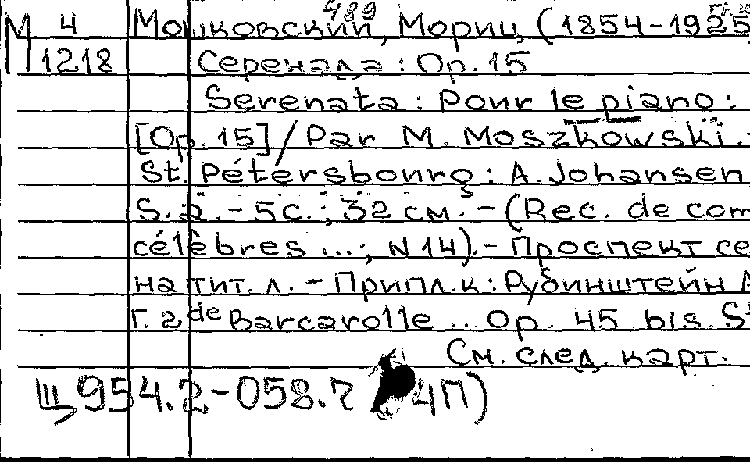 489
М 4 Мошковский, Мориц, (1854-1925
1218 Серенада : Ор. 15
Serenata : Pour le piano :
[Op. 15] / Par M. Moszkowski. -
St. Pétersbourg : A. Johansen
S. a. - 5 с. ; 32 см. - (Rec. de com
célèbres ... ; N 14). - Проспект се
на тит. л. - Припл. к: Рубинштейн А
Г. 2de Barcarolle ... Op. 45 bis. St
См. след. карт.
Щ954.2-058.7 4П)